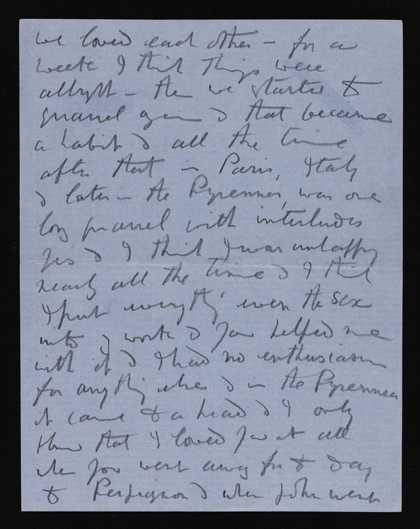 we loved each other – for a
week I think things were
allright – then we started to
quarrel again & that became
a habit & all the time
after that – in Paris, Italy
& later – the Pyrennees, was one
long quarrel with interludes
Yes & I think I was unhappy
nearly all the time & I think
I put everything even the sex
into my work & you helped me
with it & I had no enthusiasm
for anything else & in the Pyrennees
it came to a head & I only
knew that I loved you at all
when you went away for the day
to Perpignon & when John went